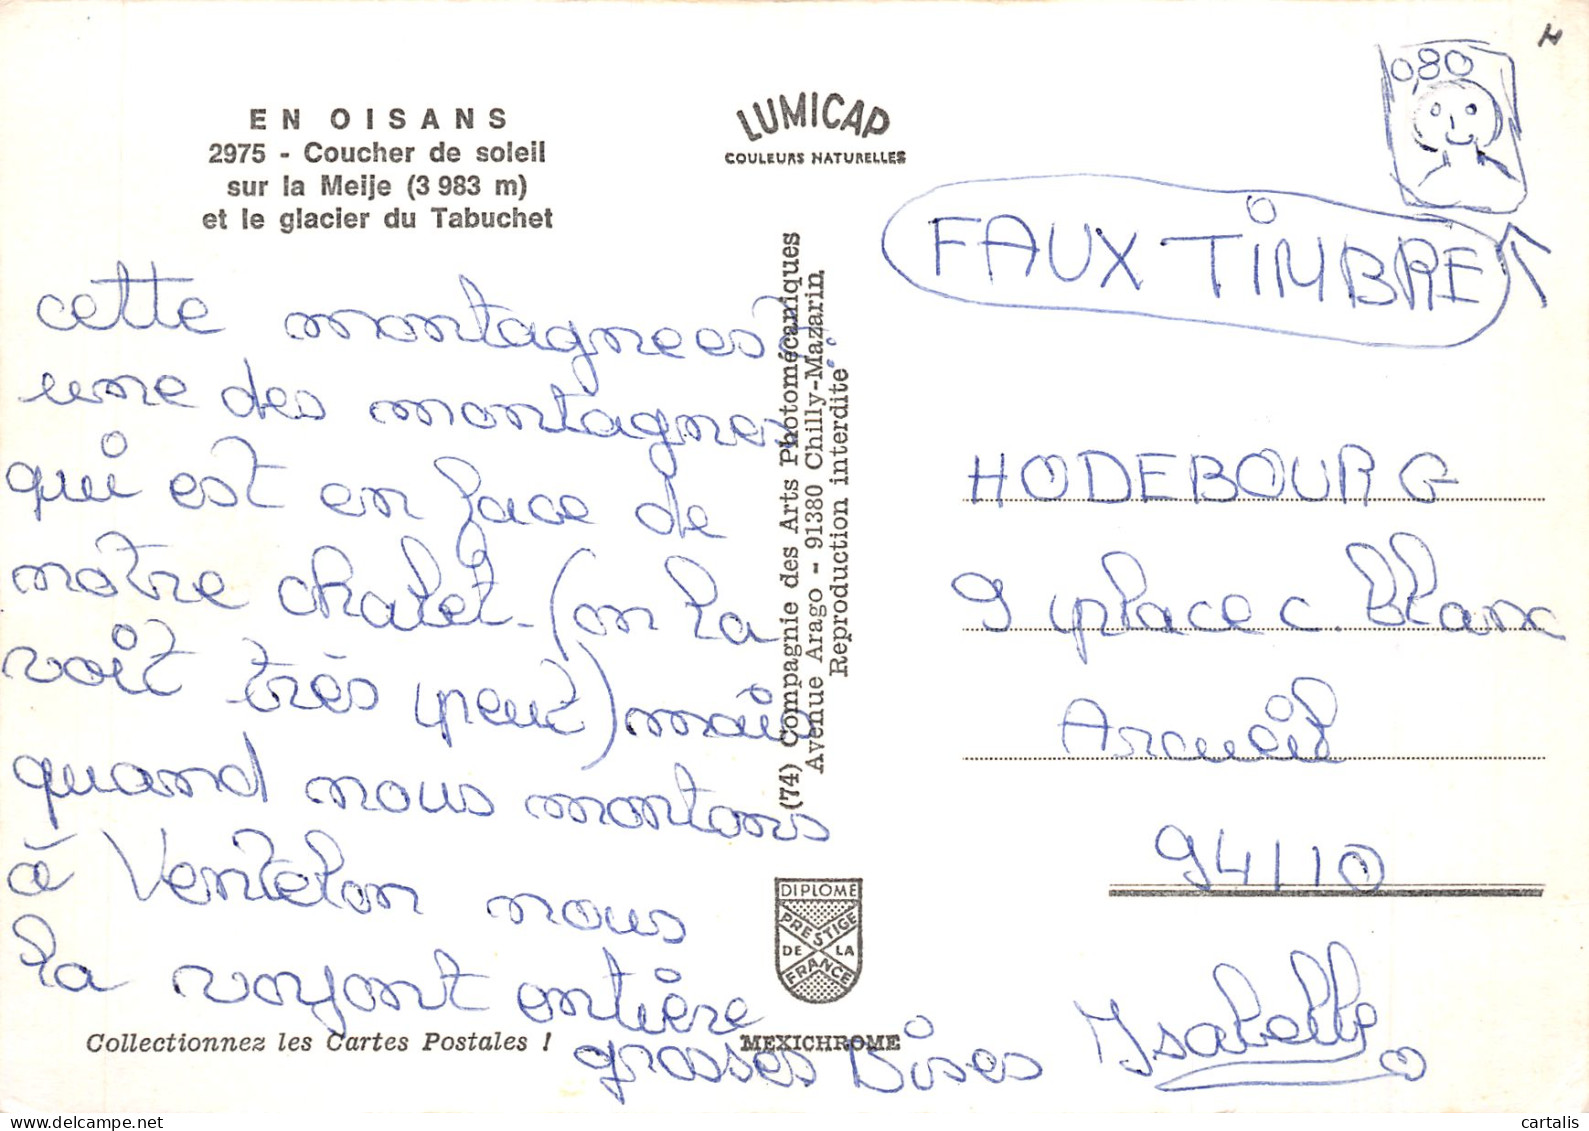 EN OISANS
2975 - Coucher de soleil
sur la Meije (3 983 m)
et le glacier du Tabuchet
LUMICAP
COULEURS NATURELLES
080
FAUX TIMBRE
cette montagne est
une des montagnes
qui est en face de
notre chalet - (on la
voit très peut) mais
quand nous montons
à Ventelon nous
la voyont entière
grosses Bises Isabelle
(74) Compagnie des Arts Photomécaniques
Avenue Arago - 91380 Chilly-Mazarin
Reproduction interdite
HODEBOURG
9 place c. Blanc
Arcueil
94110
DIPLOME
PRESTIGE
DE LA
FRANCE
MEXICHROME
Collectionnez les Cartes Postales !
cartalis